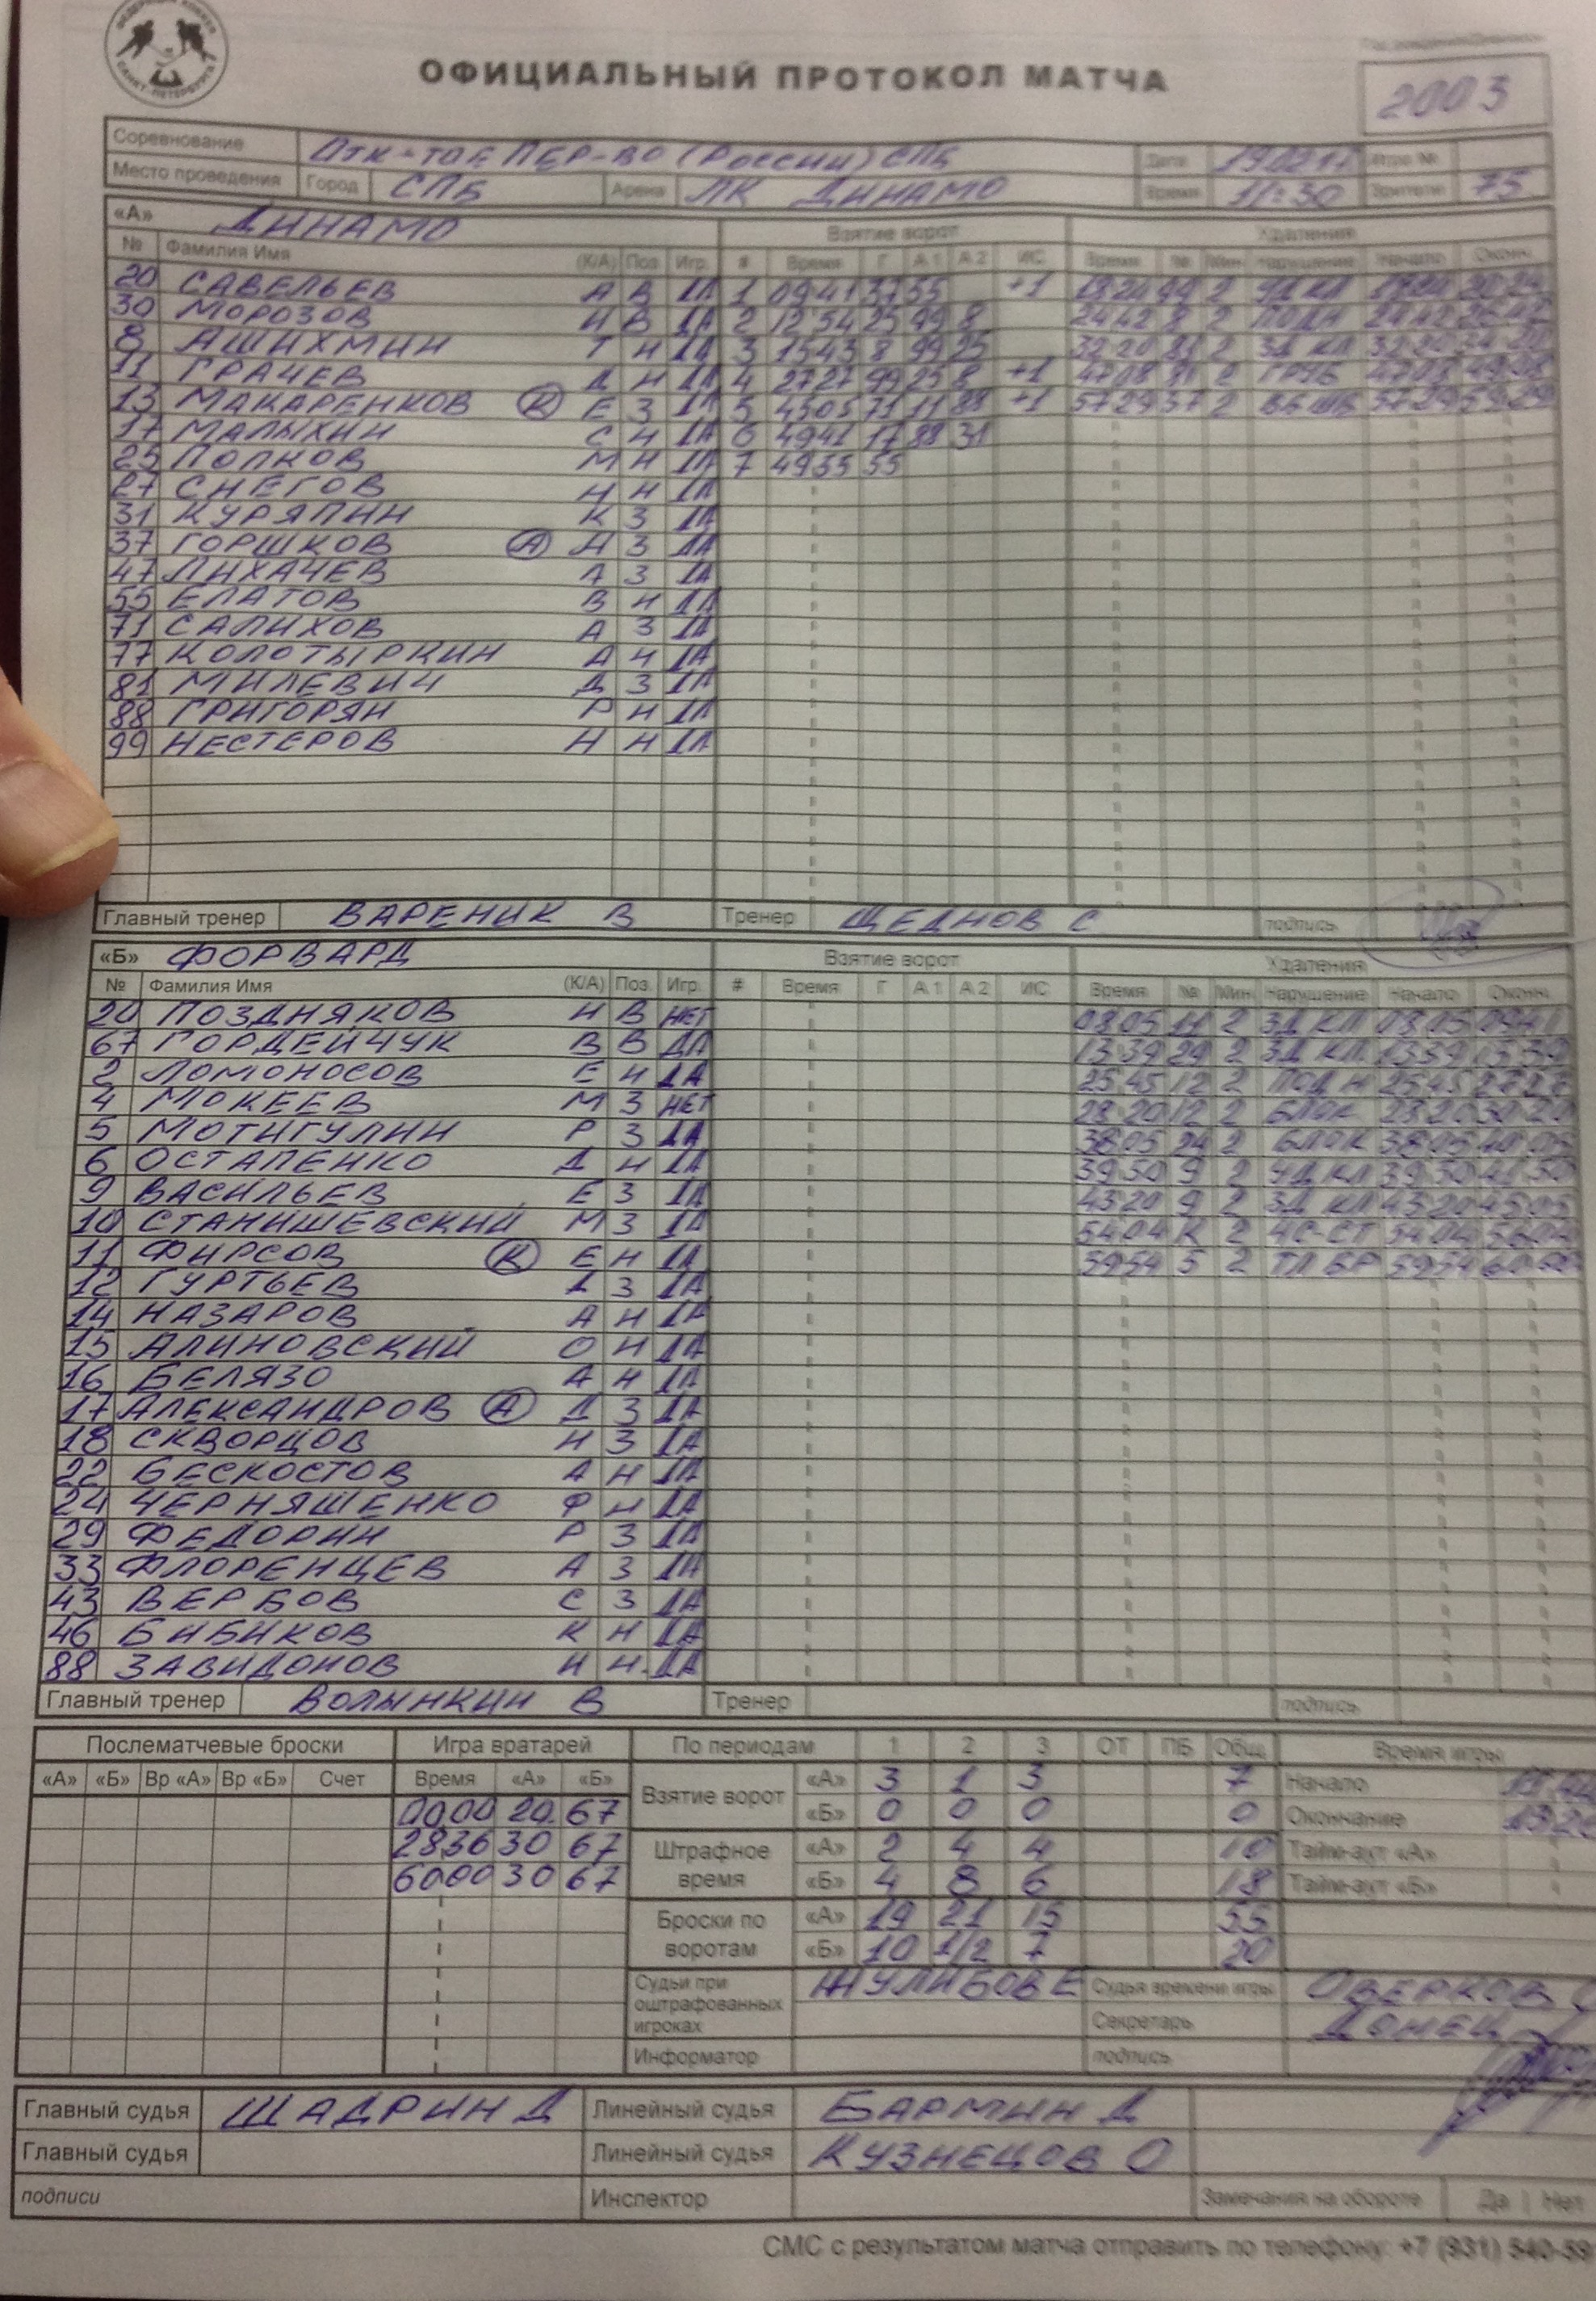 ОФИЦИАЛЬНЫЙ ПРОТОКОЛ МАТЧА
2003
Соревнование ОТК-ТОЕ ПЕР-ВО (РОССИИ) СПБ Дата
Место проведения Город СПБ Арена ЛК ДИНАМО Время 11:30 Зрители 75
«А» ДИНАМО Взятие ворот Удаления
№ Фамилия Имя (К/А) Поз Игр. # Время Г А1 А2 ИС Время № Мин Нарушение Начало Оконч.
20 САВЕЛЬЕВ А В ДА 1 09 41 37 55 +1 2 УД КЛ
30 МОРОЗОВ И В ДА 2 12 54 25 99 8 24 42 8 2 ПОДН 24 42 26 42
8 АШИХМИН Т Н ДА 3 15 43 8 99 25 32 20 81 2 ЗД КЛ 32 20 34 20
11 ГРАЧЕВ Д Н ДА 4 27 27 99 25 8 +1 47 08 2 ГРУБ 47 08 49 08
13 МАКАРЕНКОВ (К) Е З ДА 5 45 05 71 11 88 +1 57 29 37 2 57 29 59 29
17 МАЛЫХИН С Н ДА 6 49 41 17 88 31
25 ПОПКОВ М Н ДА 7 49 55 55
27 СНЕГОВ Н Н ДА
31 КУРЯПИН К З ДА
37 ГОРШКОВ (А) Н З ДА
47 ЛИХАЧЕВ А З ДА
55 ЕЛАТОВ В Н ДА
71 САЛИХОВ А З ДА
77 КОЛОТЫРКИН А Н ДА
81 МИЛЕВИЧ Д З ДА
88 ГРИГОРЯН Р Н ДА
99 НЕСТЕРОВ Н Н ДА
Главный тренер ВАРЕНИК В Тренер ЩЕДНОВ С подпись
«Б» ФОРВАРД Взятие ворот Удаления
№ Фамилия Имя (К/А) Поз. Игр. # Время Г А1 А2 ИС Время № Мин. Нарушение Начало Оконч.
20 ПОЗДНЯКОВ Н В НЕТ 08 05 11 2 ЗД КЛ 08 05 09 41
67 ГОРДЕЙЧУК В В ДА 13 39 29 2 ЗД КЛ 13 39 15 39
2 ЛОМОНОСОВ Е Н ДА 25 45 12 2 ПОДН 25 45 27 27
4 МОКЕЕВ М З НЕТ 28 20 12 2 БЛОК 28 20 30 20
5 МОТИГУЛИН Р З ДА 38 05 24 2 БЛОК 38 05 40 05
6 ОСТАПЕНКО Д Н ДА 39 50 9 2 УД КЛ 39 50 41 50
9 ВАСИЛЬЕВ Е З ДА 43 20 9 2 ЗД КЛ 43 20 45 05
10 СТАНИШЕВСКИЙ М З ДА 54 04 К 2 ЧС-СТ 54 04 56 04
11 ФИРСОВ (К) Е Н ДА 59 54 5 2 ТЛ БР 59 54 60 00
12 ГУРТЬЕВ Д З ДА
14 НАЗАРОВ А Н ДА
15 АЛИНОВСКИЙ О Н ДА
16 БЕЛЯЗО А Н ДА
17 АЛЕКСАНДРОВ (А) Д З ДА
18 СКВОРЦОВ Н З ДА
22 БЕСКОСТОВ А Н ДА
24 ЧЕРНЯШЕНКО Ф Н ДА
29 ФЕДОРИН Р З ДА
33 ФЛОРЕНЦЕВ А З ДА
43 ВЕРБОВ С З ДА
46 БИБИКОВ К Н ДА
88 ЗАВИДОНОВ И Н ДА
Главный тренер ВОЛЫНКИН В Тренер подпись
Послематчевые броски Игра вратарей По периодам 1 2 3 ОТ ПБ Общ Время игры
«А» «Б» Вр «А» Вр «Б» Счет Время «А» «Б» Взятие ворот «А» 3 1 3 7 Начало
00 00 20 67 «Б» 0 0 0 0 Окончание
28 36 30 67 Штрафное время «А» 2 4 4 10 Тайм-аут «А»
60 00 30 67 «Б» 4 8 6 18 Тайм-аут «Б»
Броски по воротам «А» 19 21 15 55
«Б» 10 1/2 7 20
Судьи при оштрафованных игроках ЖУЛИБОВ Е Судья времени игры ОВЕРКОВ
Секретарь ДОНЕЦ
Информатор подпись
Главный судья ШАДРИН Д Линейный судья БАРМИН Д
Главный судья Линейный судья КУЗНЕЦОВ О
подписи Инспектор Замечания на обороте Да Нет
СМС с результатом матча отправить по телефону: +7 (931) 540-59